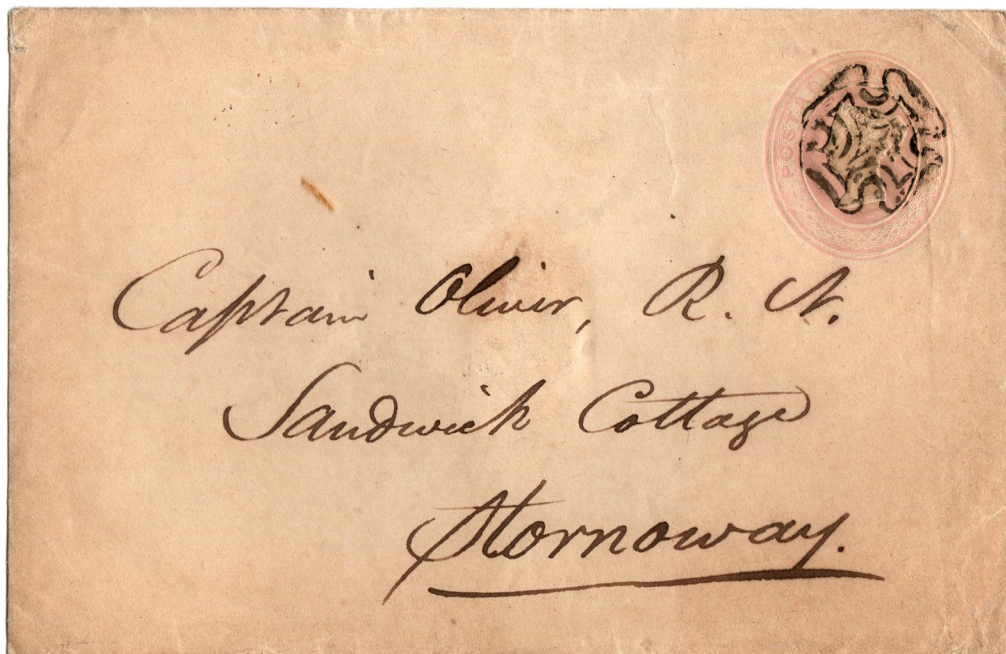 POST
Captain Oliver, R. N.
Sandwick Cottage
Stornoway.